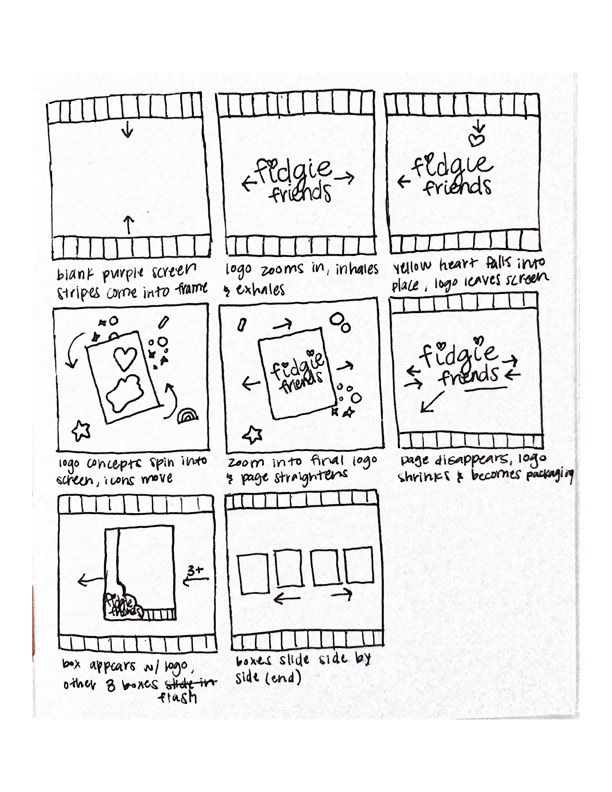 fidgie
friends
fidgie
friends
blank purple screen
stripes come into frame
logo zooms in, inhales
& exhales
yellow heart falls into
place, logo leaves screen
fidgie
friends
fidgie
friends
logo concepts spin into
screen, icons move
zoom into final logo
& page straightens
page disappears, logo
shrinks & becomes packaging
3+
fidgie
friends
box appears w/ logo,
other 3 boxes slide in
flash
boxes slide side by
side (end)